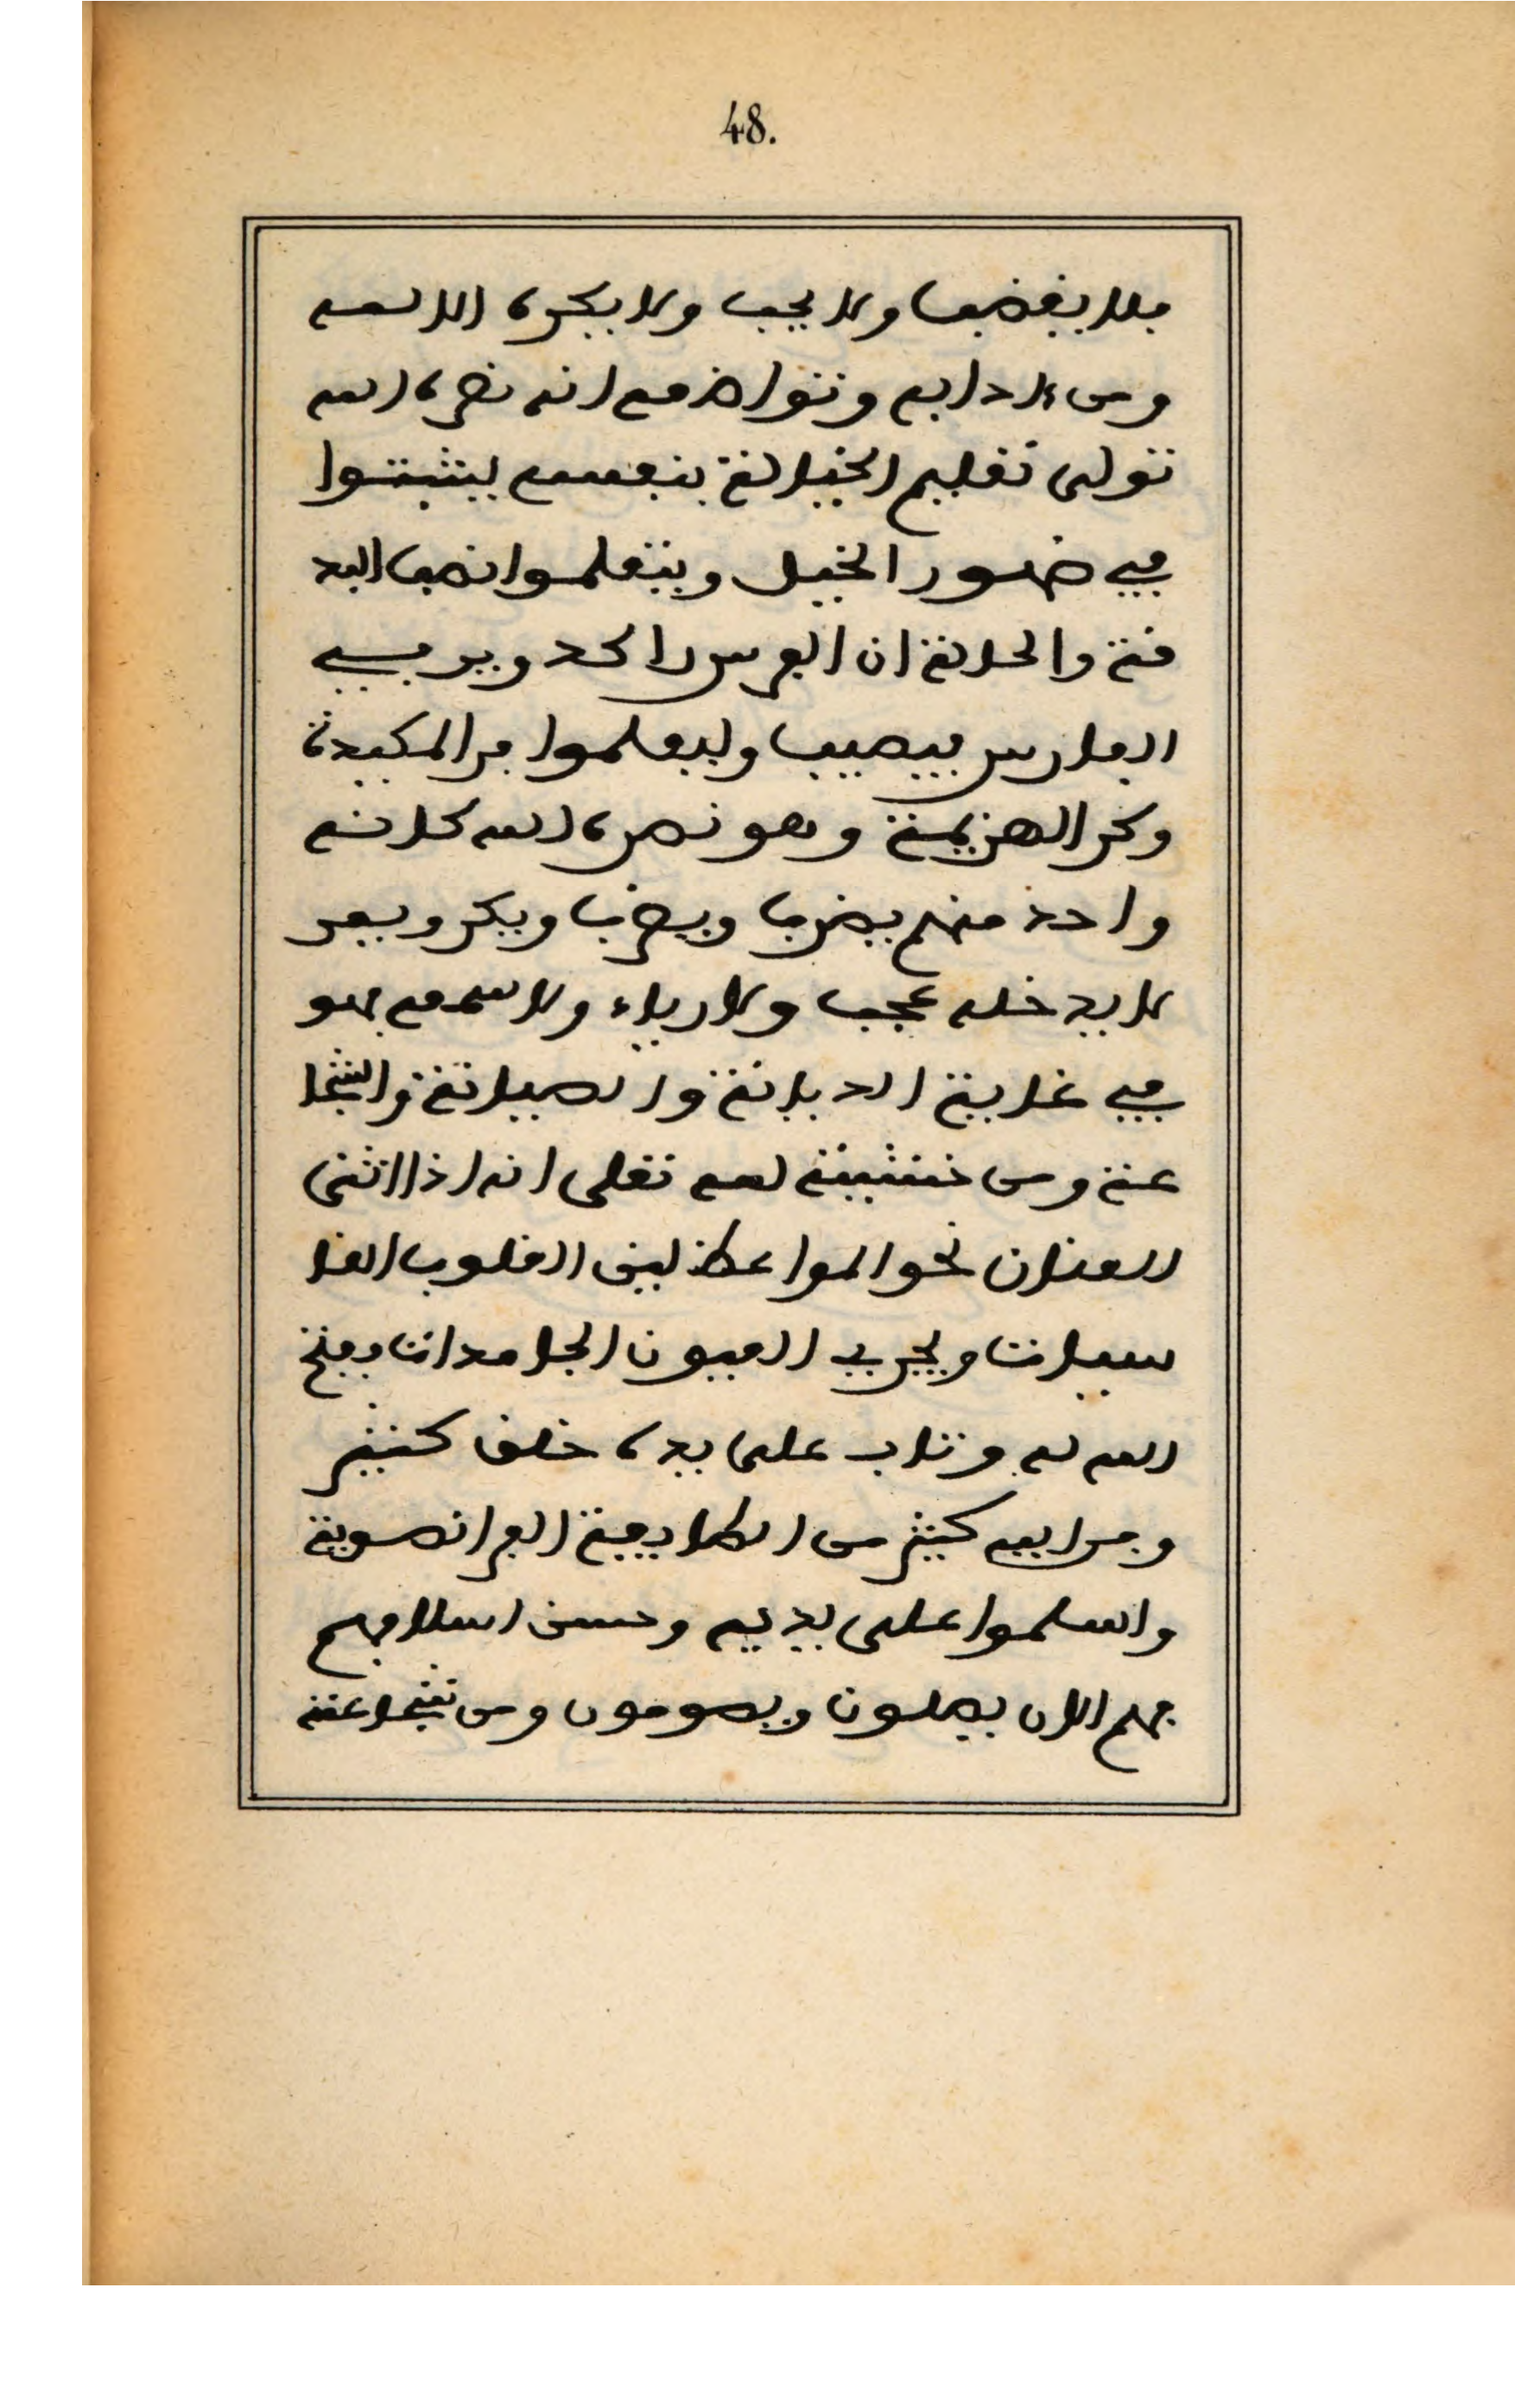 48.
فلا يغضب ولا يحب ولا يكره الا لله
ومن ءادابه وتواضعه انه نصره الله
تولى تعليم الخيالة بنفسه ليثبتوا
في ظهور الخيل ويتعلموا نصب البد
قة والحالة ان الفرس راكد ويرمي
الفارس فيصيب وليعلموا فر المكيدة
وكر الهزيمة وهو نصره الله كانه
واحد منهم يضرب ويضرب ويكر ويفر
لا يدخله عجب ولا رياء ولا سمعه فهو
في غاية الديانة والصيانة والشجا
عة ومن خشيته لله تعلى انه اذا اثنى
العنان نحو المواعظ لين القلوب القا
سيات ويجري العيون الجامدات وفتح
الله له وتاب على يده خلق كثير
وفر اليه كثير من الطايفة الفرانصوية
واسلموا على يديه وحسن اسلامهم
فهم الان يصلون ويصومون ومن شجاعته